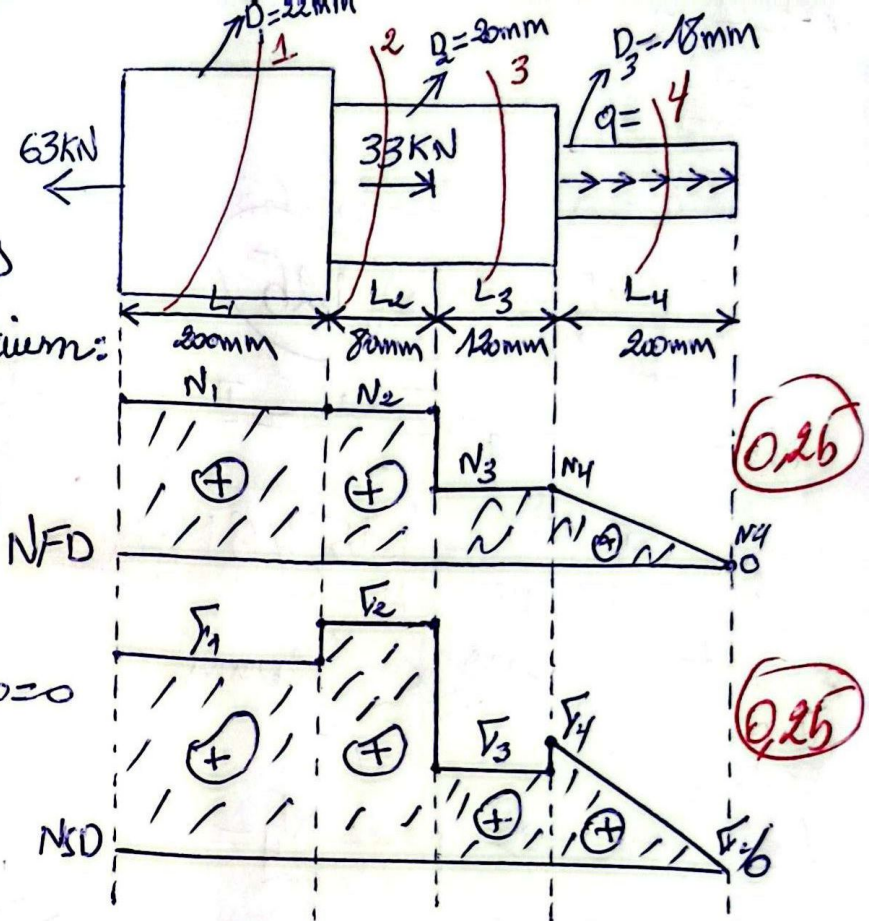 D=22mm
1 2 D2=20mm 3 D3=18mm
q= 4
63KN 33KN
L1 L2 L3 L4
200mm 80mm 120mm 200mm
N1 N2
N3 N4
0,25
NFD N4
0
σ1 σ2
=0
σ3 σ4
0,25
NSD σ=0